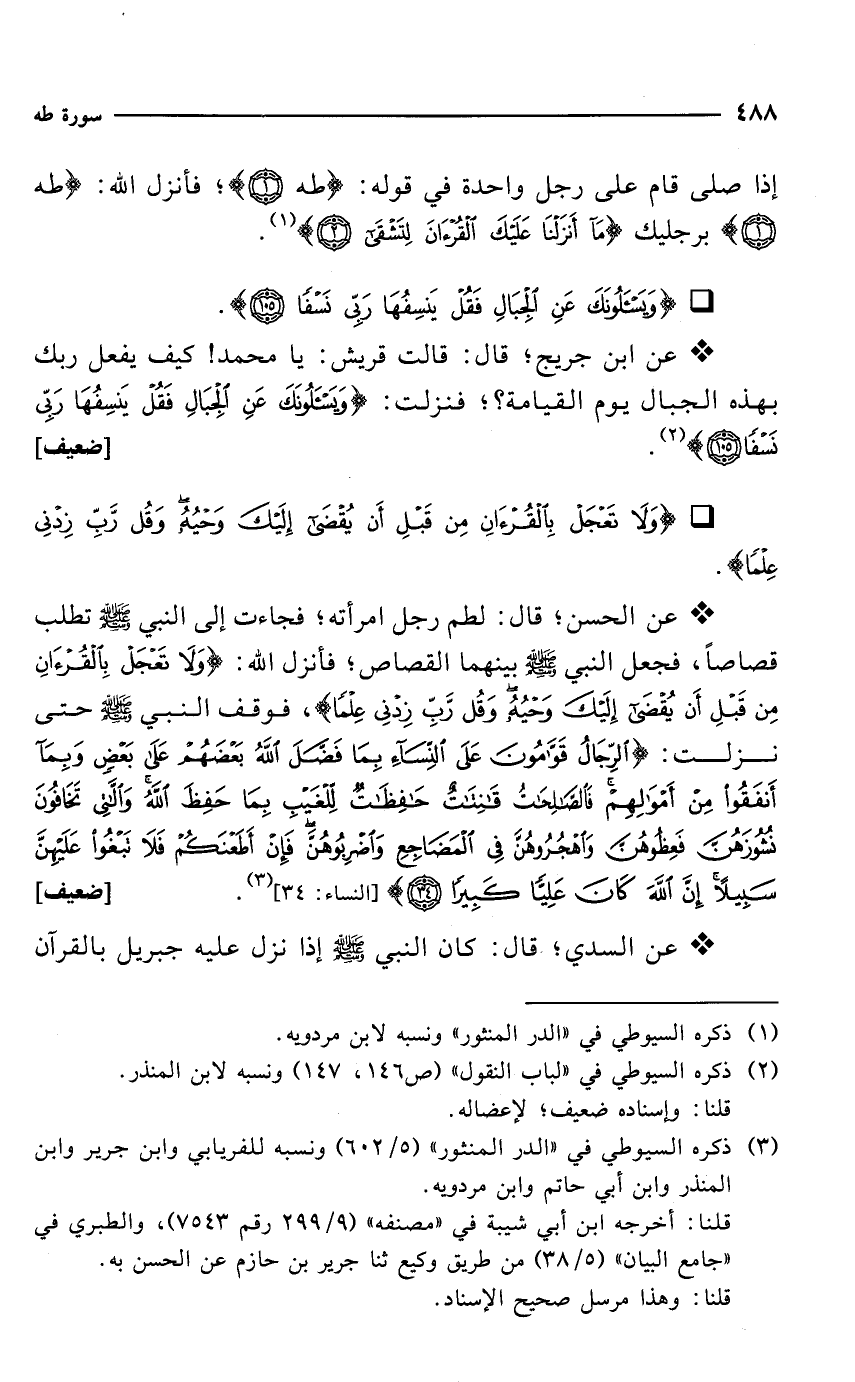 ٤٨٨ سورة طه
إذا صلى قام على رجل واحدة في قوله: ﴿طه ۝١﴾؛ فأنزل الله: ﴿طه
۝١﴾ برجليك ﴿مَآ أَنزَلْنَا عَلَيْكَ ٱلْقُرْءَانَ لِتَشْقَىٰٓ ۝٢﴾(١).
❑ ﴿وَيَسْـَٔلُونَكَ عَنِ ٱلْجِبَالِ فَقُلْ يَنسِفُهَا رَبِّى نَسْفًا ۝١٠٥﴾.
❖ عن ابن جريج؛ قال: قالت قريش: يا محمد! كيف يفعل ربك
بهذه الجبال يوم القيامة؟؛ فنزلت: ﴿وَيَسْـَٔلُونَكَ عَنِ ٱلْجِبَالِ فَقُلْ يَنسِفُهَا رَبِّى
نَسْفًا ۝١٠٥﴾(٢). [ضعيف]
❑ ﴿وَلَا تَعْجَلْ بِٱلْقُرْءَانِ مِن قَبْلِ أَن يُقْضَىٰٓ إِلَيْكَ وَحْيُهُۥ ۖ وَقُل رَّبِّ زِدْنِى
عِلْمًا﴾.
❖ عن الحسن؛ قال: لطم رجل امرأته؛ فجاءت إلى النبي ﷺ تطلب
قصاصاً، فجعل النبي ﷺ بينهما القصاص؛ فأنزل الله: ﴿وَلَا تَعْجَلْ بِٱلْقُرْءَانِ
مِن قَبْلِ أَن يُقْضَىٰٓ إِلَيْكَ وَحْيُهُۥ ۖ وَقُل رَّبِّ زِدْنِى عِلْمًا﴾، فوقف النبي ﷺ حتى
نزلت: ﴿ٱلرِّجَالُ قَوَّٰمُونَ عَلَى ٱلنِّسَآءِ بِمَا فَضَّلَ ٱللَّهُ بَعْضَهُمْ عَلَىٰ بَعْضٍ وَبِمَآ
أَنفَقُوا۟ مِنْ أَمْوَٰلِهِمْ ۚ فَٱلصَّٰلِحَٰتُ قَٰنِتَٰتٌ حَٰفِظَٰتٌ لِّلْغَيْبِ بِمَا حَفِظَ ٱللَّهُ ۚ وَٱلَّٰتِى تَخَافُونَ
نُشُوزَهُنَّ فَعِظُوهُنَّ وَٱهْجُرُوهُنَّ فِى ٱلْمَضَاجِعِ وَٱضْرِبُوهُنَّ ۖ فَإِنْ أَطَعْنَكُمْ فَلَا تَبْغُوا۟ عَلَيْهِنَّ
سَبِيلًا ۗ إِنَّ ٱللَّهَ كَانَ عَلِيًّا كَبِيرًا ۝٣٤﴾ [النساء: ٣٤](٣). [ضعيف]
❖ عن السدي؛ قال: كان النبي ﷺ إذا نزل عليه جبريل بالقرآن
(١) ذكره السيوطي في «الدر المنثور» ونسبه لابن مردويه.
(٢) ذكره السيوطي في «لباب النقول» (ص١٤٦، ١٤٧) ونسبه لابن المنذر.
قلنا: وإسناده ضعيف؛ لإعضاله.
(٣) ذكره السيوطي في «الدر المنثور» (٦٠٢/٥) ونسبه للفريابي وابن جرير وابن
المنذر وابن أبي حاتم وابن مردويه.
قلنا: أخرجه ابن أبي شيبة في «مصنفه» (٢٩٩/٩ رقم ٧٥٤٣)، والطبري في
«جامع البيان» (٣٨/٥) من طريق وكيع ثنا جرير بن حازم عن الحسن به.
قلنا: وهذا مرسل صحيح الإسناد.